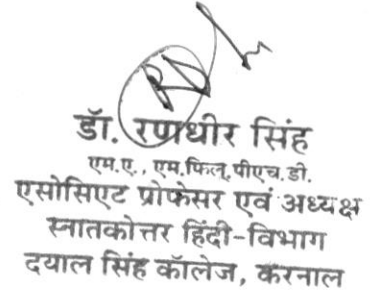 डॉ. रणधीर सिंह
एम.ए., एम.फिल्. पीएच.डी.
एसोसिएट प्रोफेसर एवं अध्यक्ष
स्नातकोत्तर हिंदी-विभाग
दयाल सिंह कॉलेज, करनाल